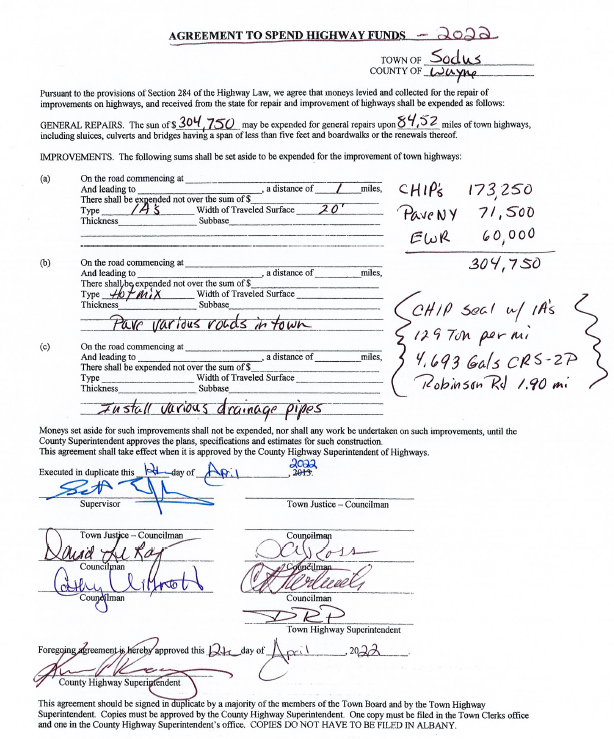 AGREEMENT TO SPEND HIGHWAY FUNDS – 2022
TOWN OF Sodus
COUNTY OF Wayne
Pursuant to the provisions of Section 284 of the Highway Law, we agree that moneys levied and collected for the repair of
improvements on highways, and received from the state for repair and improvement of highways shall be expended as follows:
GENERAL REPAIRS. The sum of $ 304,750 may be expended for general repairs upon 84,52 miles of town highways,
including sluices, culverts and bridges having a span of less than five feet and boardwalks or the renewals thereof.
IMPROVEMENTS. The following sums shall be set aside to be expended for the improvement of town highways:
(a) On the road commencing at
And leading to , a distance of 1 miles,
There shall be expended not over the sum of $
Type 1A's Width of Traveled Surface 20'
Thickness Subbase
CHIP's 173,250
PaveNY 71,500
EWR 60,000
304,750
(b) On the road commencing at
And leading to , a distance of miles,
There shall be expended not over the sum of $
Type Hotmix Width of Traveled Surface
Thickness Subbase
Pave various roads in town
CHIP Seal w/ 1A's
129 Ton per mi
4,693 Gals CRS-2P
Robinson Rd 1.90 mi
(c) On the road commencing at
And leading to , a distance of miles,
There shall be expended not over the sum of $
Type Width of Traveled Surface
Thickness Subbase
Install various drainage pipes
Moneys set aside for such improvements shall not be expended, nor shall any work be undertaken on such improvements, until the
County Superintendent approves the plans, specifications and estimates for such construction.
This agreement shall take effect when it is approved by the County Highway Superintendent of Highways.
2022
Executed in duplicate this 12th day of April , 2019.
Supervisor Town Justice – Councilman
Town Justice – Councilman Councilman
Councilman Councilman
Councilman Councilman
DRP
Town Highway Superintendent
Foregoing agreement is hereby approved this 12th day of April , 2022
County Highway Superintendent
This agreement should be signed in duplicate by a majority of the members of the Town Board and by the Town Highway
Superintendent. Copies must be approved by the County Highway Superintendent. One copy must be filed in the Town Clerks office
and one in the County Highway Superintendent's office. COPIES DO NOT HAVE TO BE FILED IN ALBANY.